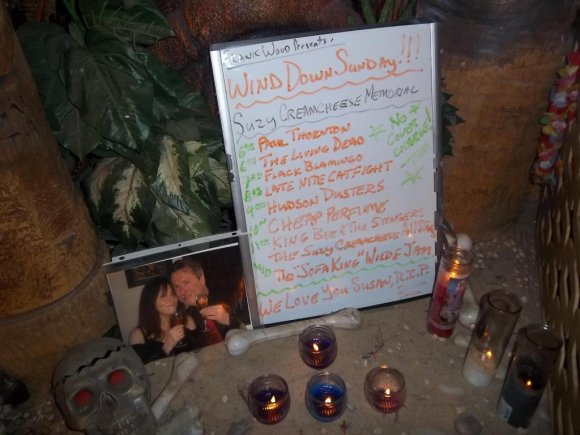 Frank Wood Presents:
WIND DOWN SUNDAY!!!
SUZY CREAMCHEESE MEMORIAL
PAIR THORNTON
THE LIVING DEAD
FLACK BLAMINGO
LATE NITE CATFIGHT
9:00 HUDSON DUSTERS
CHEAP PERFUME
KING BEE & THE STINGERS
THE SUZY CREAMCHEESE
MID THE "SOFA KING" WILDE JAM
WE LOVE YOU SUSAN, R.I.P.
NO
COVER
CHARGE!